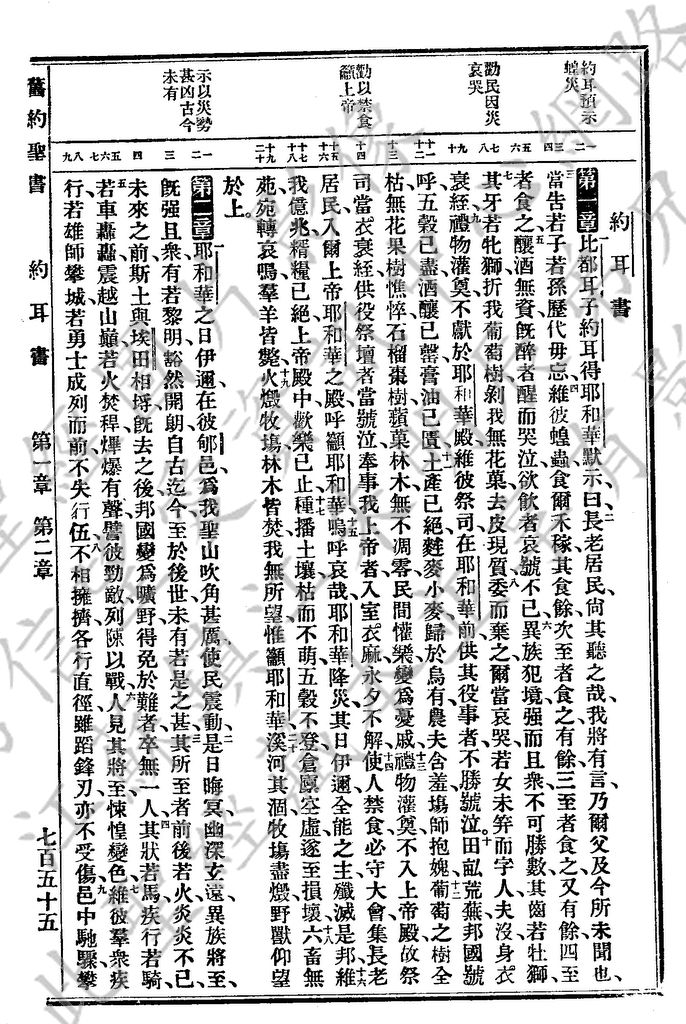 約耳書
第一章 比都耳子約耳得耶和華默示曰長老居民尙其聽之哉我將有言乃爾父及今所未聞也
當告若子若孫歷代毋忘維彼蝗蟲食爾禾稼其食餘次至者食之有餘三至者食之又有餘四至
者食之釀酒無資既醉者醒而哭泣欲飲者哀號不已異族犯境强而且衆不可勝數其齒若牡獅
其牙若牝獅折我葡萄樹剝我無花菓去皮現質委而棄之爾當哀哭若女未笄而字人夫沒身衣
衰絰禮物灌奠不獻於耶和華殿維彼祭司在耶和華前供其役事者不勝號泣田畝荒蕪邦國號
呼五穀已盡酒釀已罄膏油已匱土產已絕麰麥小麥歸於烏有農夫含羞塲師抱媿葡萄之樹全
枯無花果樹憔悴石榴棗樹蘋菓林木無不凋零民間懽樂變爲憂戚禮物灌奠不入上帝殿故祭
司當衣衰絰供役祭壇者當號泣奉事我上帝者入室衣麻永夕不解使人禁食必守大會集長老
居民入爾上帝耶和華之殿呼籲耶和華嗚呼哀哉耶和華降災其日伊邇全能之主殲滅是邦維
我億兆糈糧已絕上帝殿中歡樂已止種播土壤枯而不萌五穀不登倉廩空虛遂至損壞六畜無
苑宛轉哀鳴羣羊皆斃火燬牧塲林木皆焚我無所望惟籲耶和華溪河其涸牧塲盡燬野獸仰望
於上
第二章 耶和華之日伊邇在彼郇邑爲我聖山吹角甚厲使民震動是日晦冥幽深玄遠異族將至
既强且衆有若黎明豁然開朗自古迄今至於後世未有若是之甚其所至者前後若火炎炎不已
未來之前斯土與埃田相埒既去之後邦國變爲曠野得免於難者卒無一人其狀若馬疾行若騎
若車轟轟震越山巔若火焚稈爗爆有聲譬彼勁敵列陳以戰人見其將至悚惶變色維彼羣衆疾
行若雄師攀城若勇士成列而前不失行伍不相擁擠各行直徑雖蹈鋒刃亦不受傷邑中馳驟攀
約耳預示蝗災
勸民因災哀哭
勸以禁食籲上帝
示以災勢甚凶古今未有
舊約聖書 約耳書 第一章 第二章 七百五十五